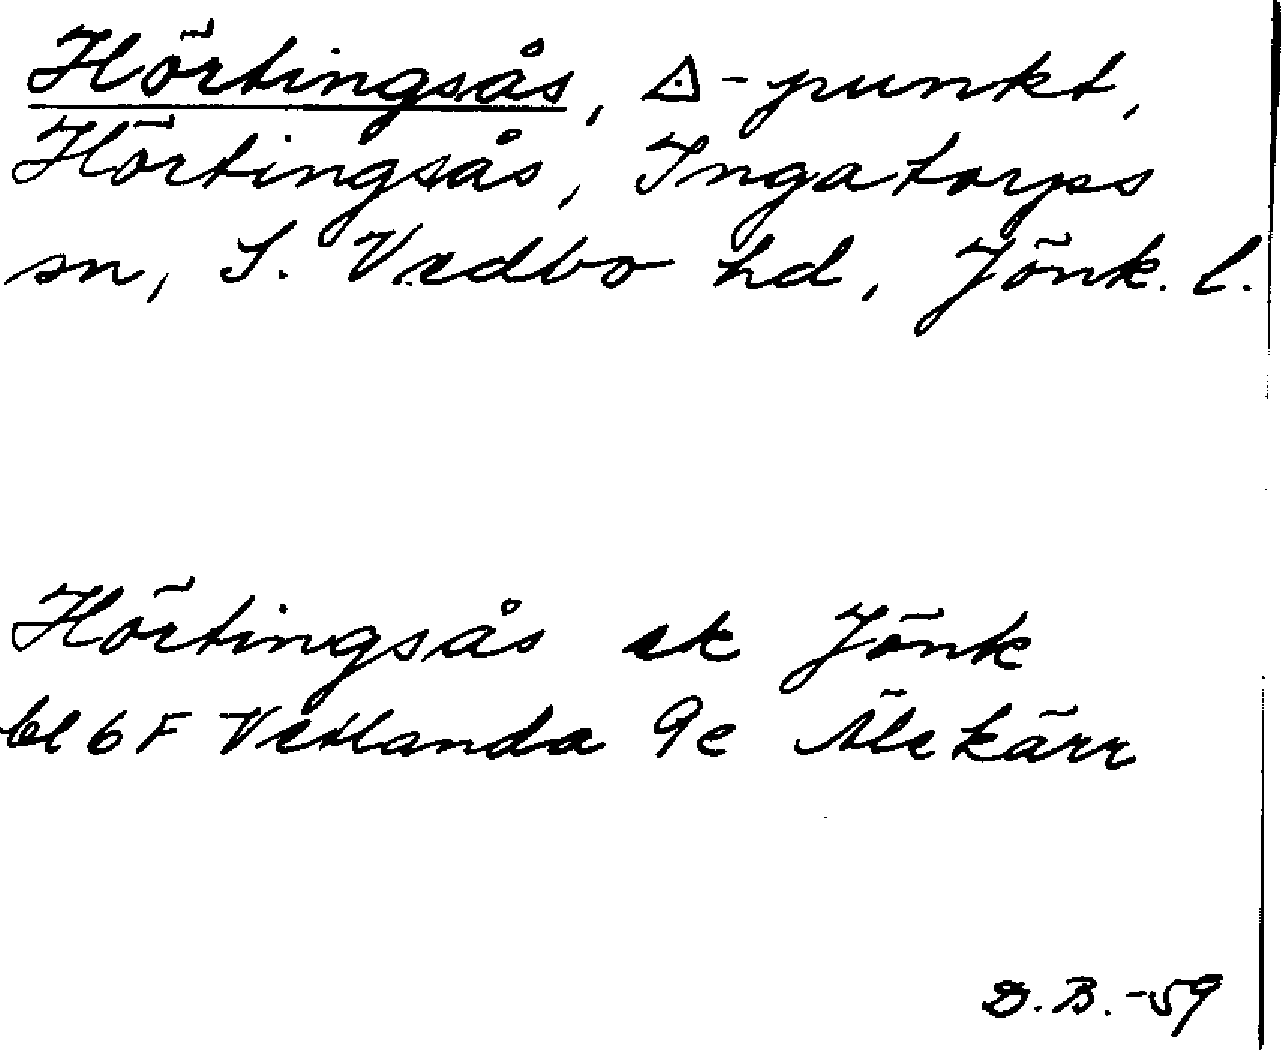 Hörtingsås, △-punkt,
Hörtingsås, Ingatorps
sn, S. Vedbo hd, Jönk. l.
Hörtingsås ek Jönk
bl 6 F Vetlanda 9e Älekärr
D.B.-59